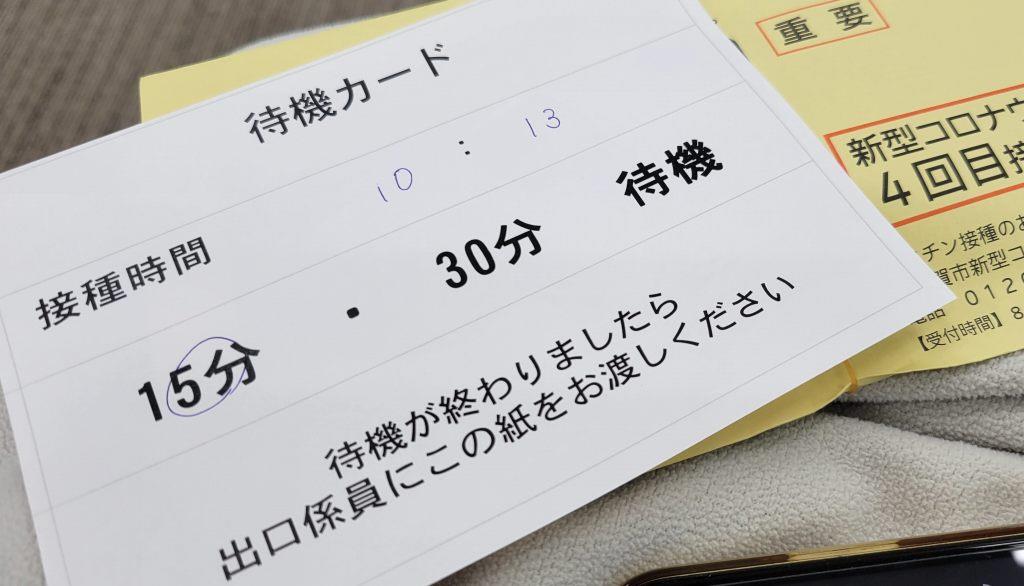 待機カード
接種時間 10 : 13
15分 ・ 30分 待機
待機が終わりましたら
出口係員にこの紙をお渡しください
重要
新型コロナウ
4回目接
チン接種のお
賀市新型コ
電話 0120
【受付時間】8